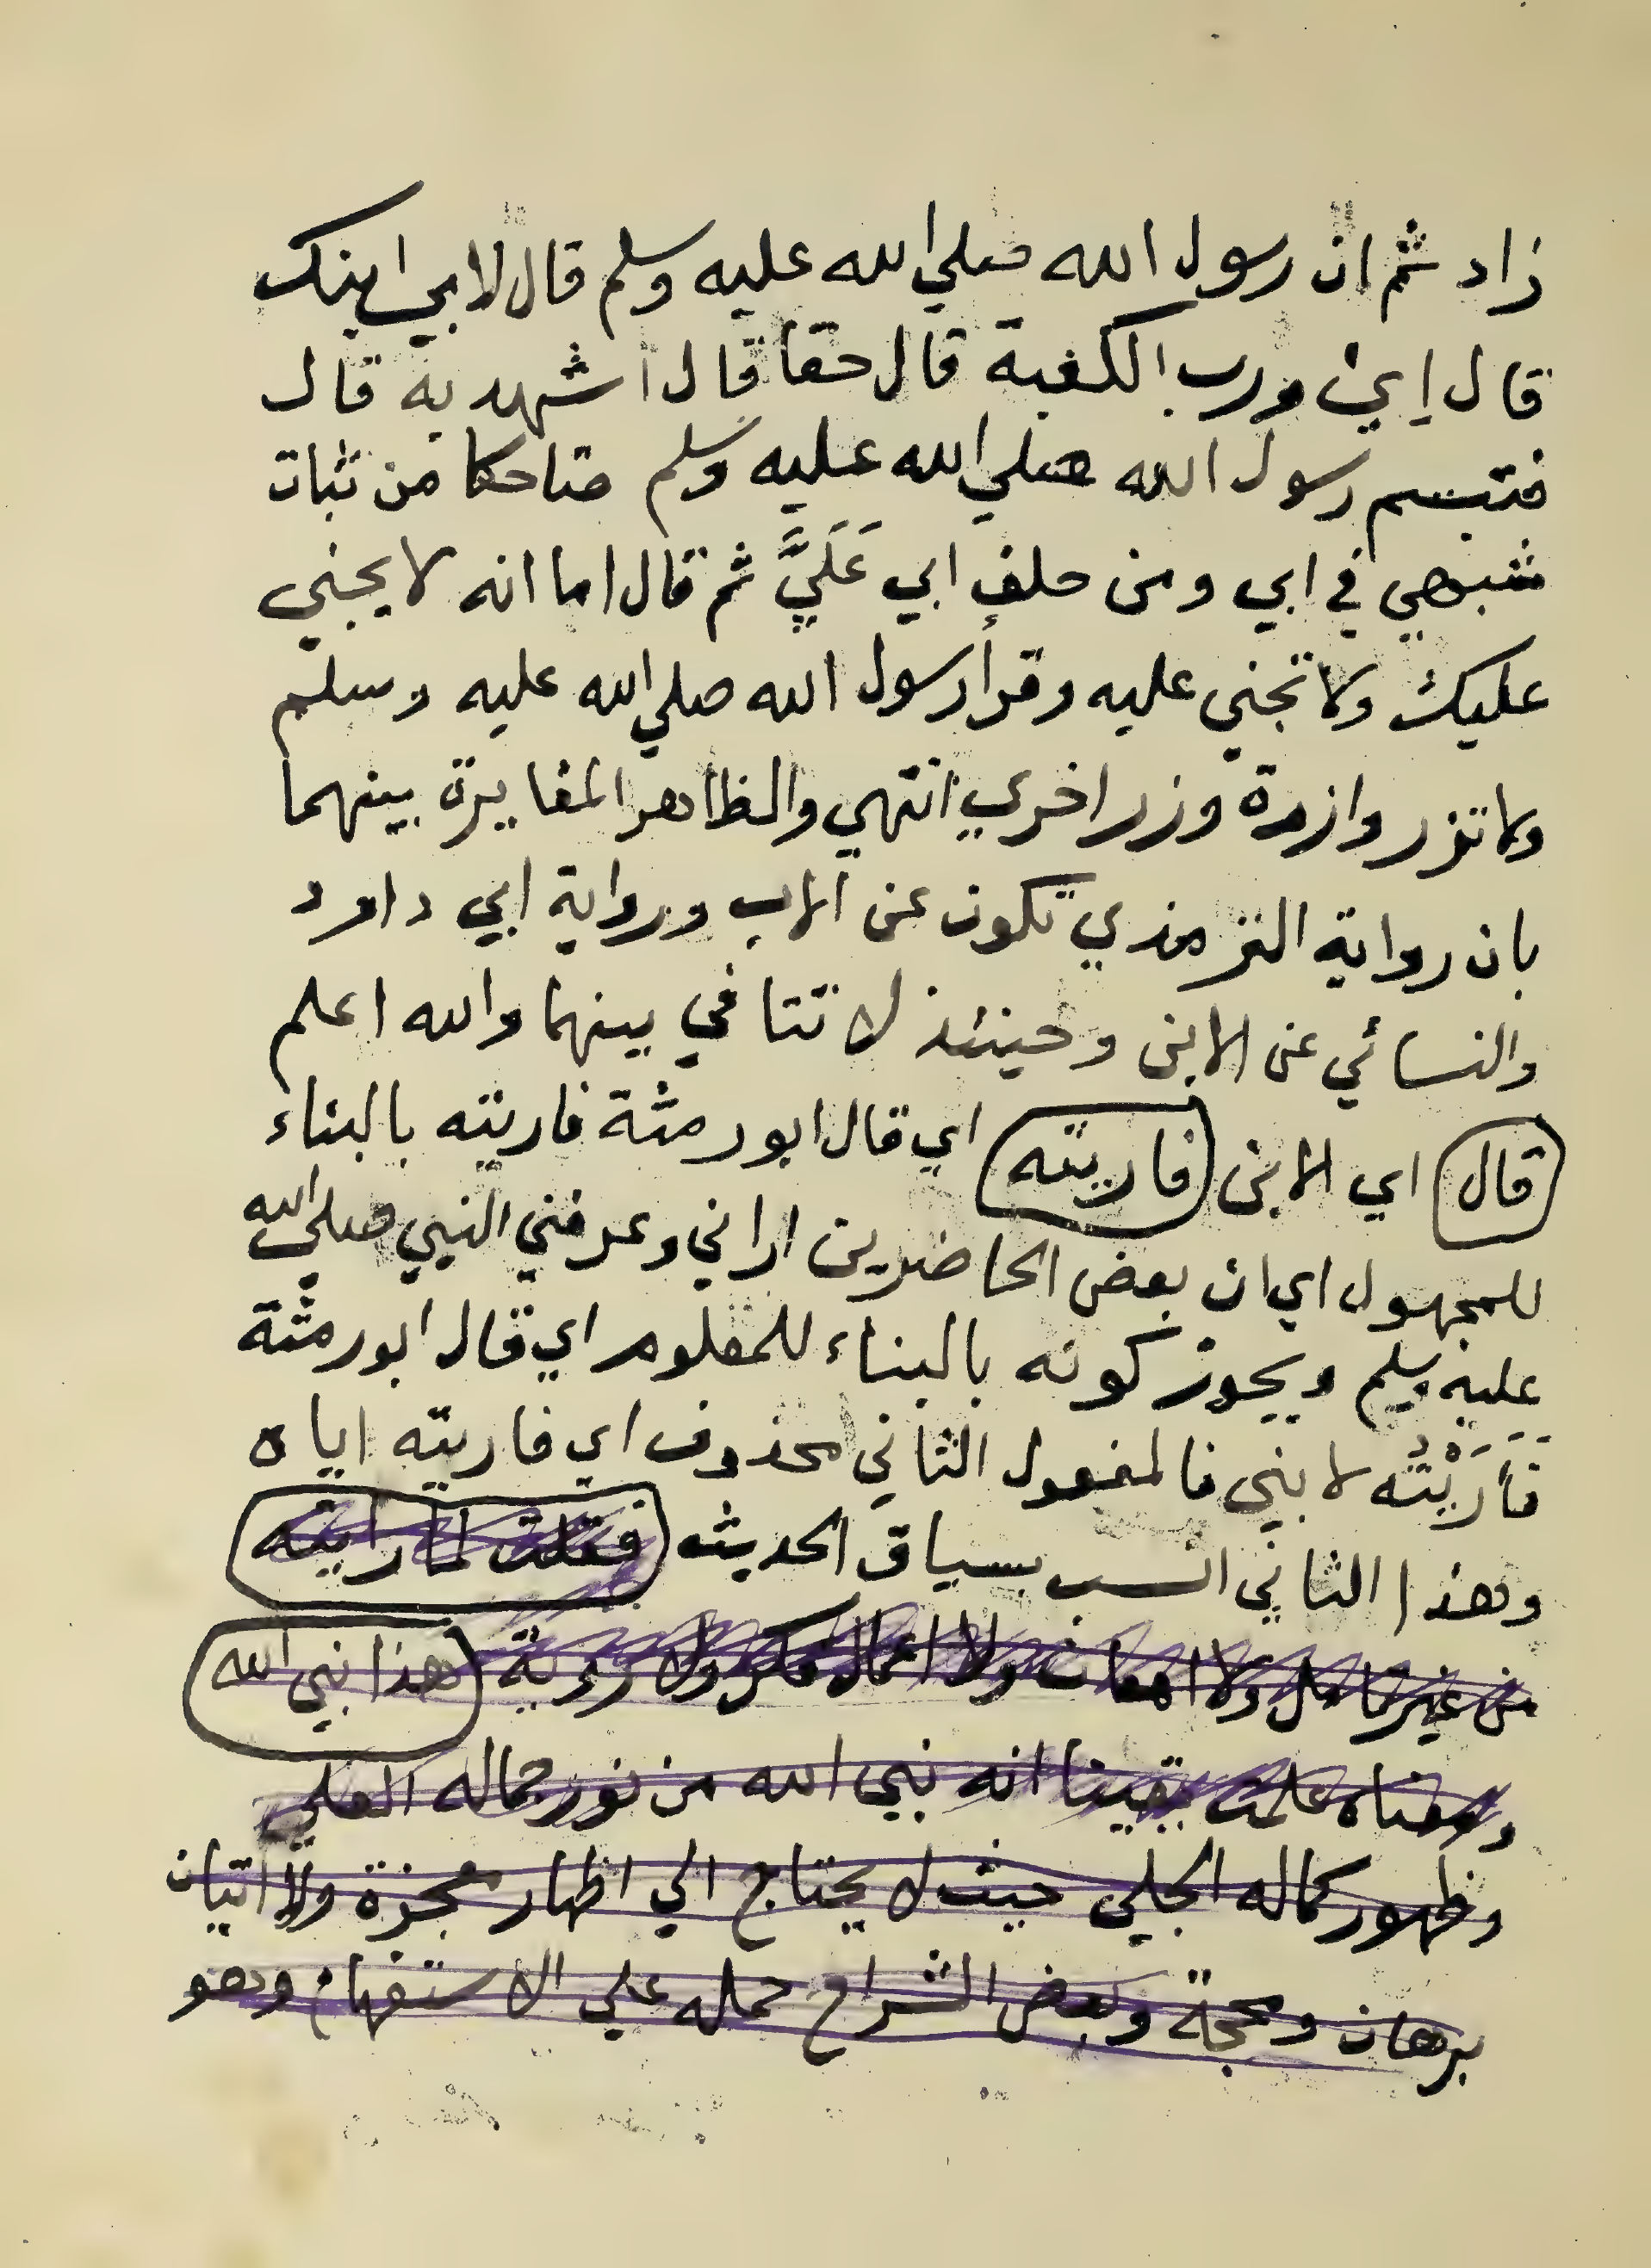 زاد ثم ان رسول الله صلي الله عليه وسلم قال لابي ابنك
قال اِي ورب الكعبة قال حقا قال اشهد به قال
فتبسم رسول الله صلي الله عليه وسلم ضاحكا من ثبات
شبهي في ابي ومن حلف ابي عَلَيَّ ثم قال اما انه لا يجني
عليك ولا تجني عليه وقرأ رسول الله صلي الله عليه وسلم
ولا تزر وازرة وزر اخري انتهي والظاهر المغايرة بينهما
بان رواية الترمذي تكون عن الاب ورواية ابي داود
والنسائي عن الابن وحينئذ لا تتنافي بينهما والله اعلم
قال اي الابن فاريته اي قال ابو رمثة فاريته بالبناء
للمجهول اي ان بعض الحاضرين اراني وعرفني النبي صلي الله
عليه وسلم ويجوز كونه بالبناء للمعلوم اي قال ابو رمثة
فَأَرَيْتُه لابني فالمفعول الثاني محذوف اي فاريته اياه
وهذا الثاني انسب بسياق الحديث فقلت لما رايته
من غير تامل ولا امعان ولا اعمال فكر ولا روية هذا نبي الله
ومعناه علمت يقينا انه نبي الله من نور جماله العلي
وظهور كماله الجلي حيث لا يحتاج الي اظهار معجزة ولا اتيان
برهان ومحجة وبعض الشراح حمله علي الاستفهام وهو